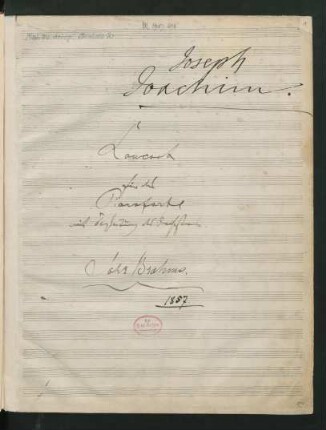 Joseph
Joachim.
Concert
für das
Pianoforte
mit Begleitung des Orchesters
Johs Brahms.
1857